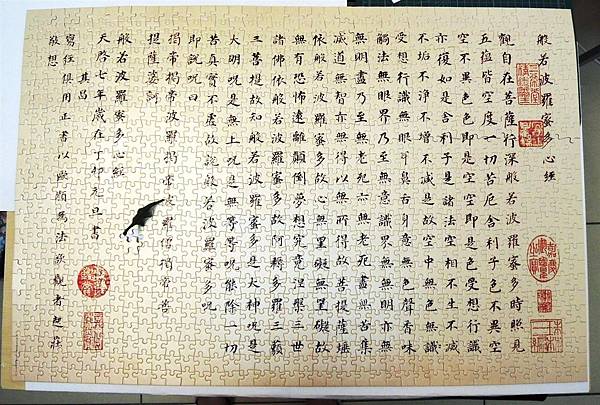 般若波羅蜜多心經
觀自在菩薩行深般若波羅蜜多時照見
五蘊皆空度一切苦厄舍利子色不異空
空不異色色即是空空即是色受想行識
亦復如是舍利子是諸法空相不生不滅
不垢不淨不增不減是故空中無色無
受想行識無眼耳鼻舌身意無色聲香味
觸法無眼界乃至無意識界無無明亦無
無明盡乃至無老死亦無老死盡無苦集
滅道無智亦無得以無所得故菩提薩埵
依般若波羅蜜多故心無罣礙無罣礙故
無有恐怖遠離顛倒夢想究竟涅槃三世
諸佛依般若波羅蜜多故阿耨多羅三藐
三菩提故知般若波羅蜜多是大神咒是
大明咒是無上咒是無等等咒能除一切
苦真實不虛故說般若波羅蜜多咒
即說咒曰
揭帝揭帝波羅揭帝波羅僧揭帝菩
提薩婆訶
般若波羅蜜多心經
天啟七年歲在丁卯元旦書
其昌
寫經俱用正書以歐顏為法欲觀者起莊
敬想